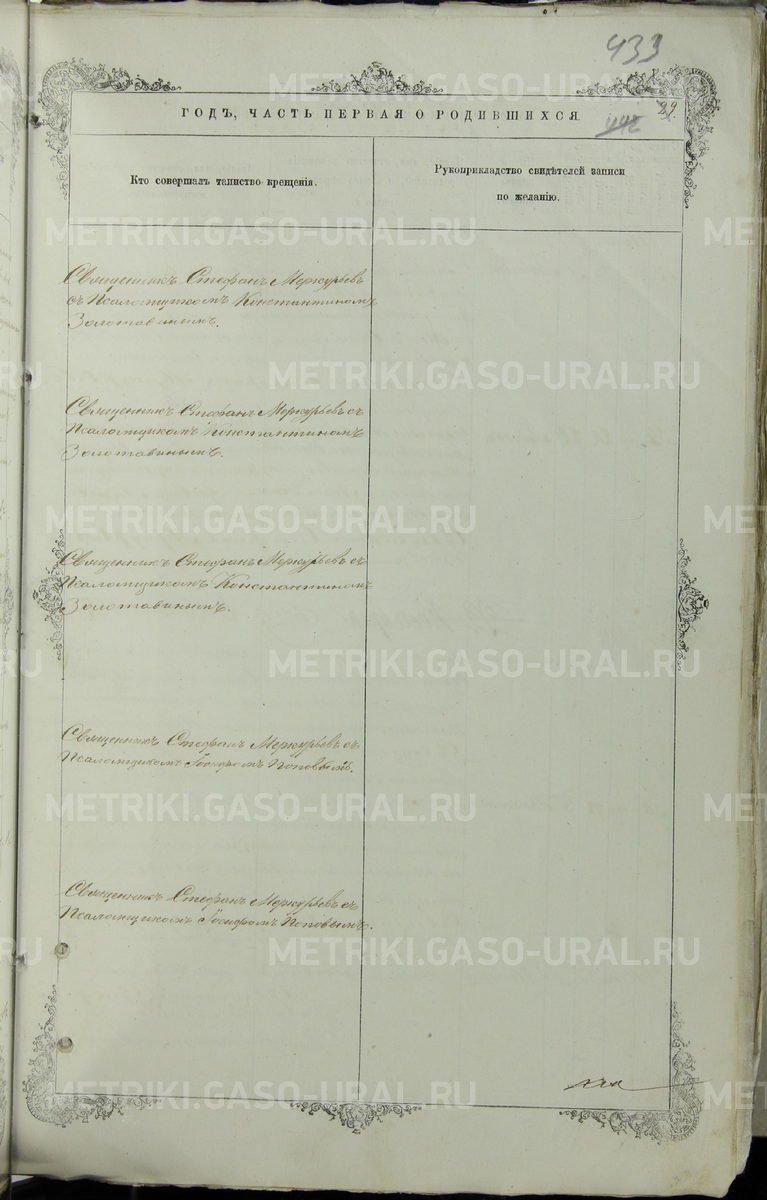 433
ГОДЪ, ЧАСТЬ ПЕРВАЯ О РОДИВШИХСЯ
442 29.
Кто совершалъ таинство крещенія.
Рукоприкладство свидѣтелей записи
по желанію.
Священникъ Стефанъ Меркурьевъ
съ Псаломщикомъ Константиномъ
Золотавинымъ.
Священникъ Стефанъ Меркурьевъ съ
Псаломщикомъ Константиномъ
Золотавинымъ.
Священникъ Стефанъ Меркурьевъ съ
Псаломщикомъ Константиномъ
Золотавинымъ.
Священникъ Стефанъ Меркурьевъ съ
Псаломщикомъ Іосифомъ Поповымъ.
Священникъ Стефанъ Меркурьевъ съ
Псаломщикомъ Іосифомъ Поповымъ.
METRIKI.GASO-URAL.RU